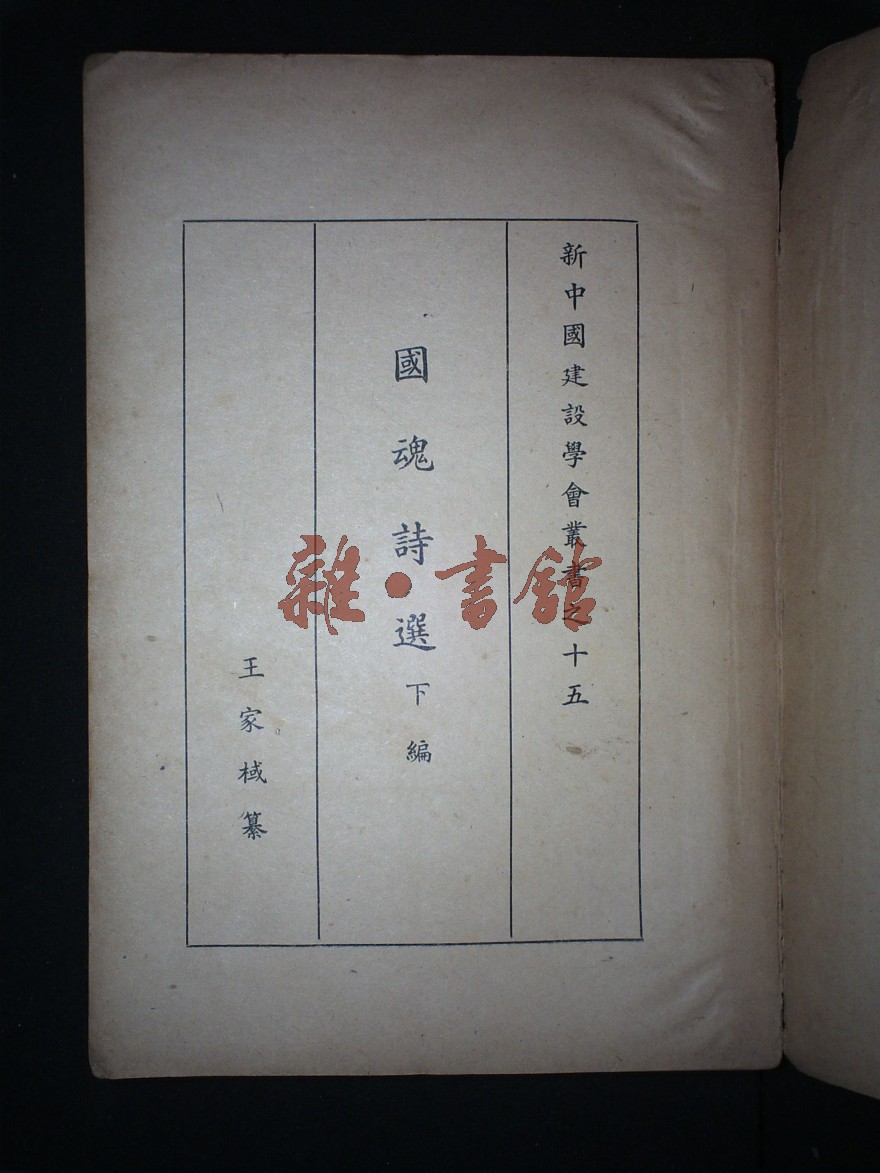 新中國建設學會叢書之十五
國魂詩選下編
王家棫纂
雜·書館